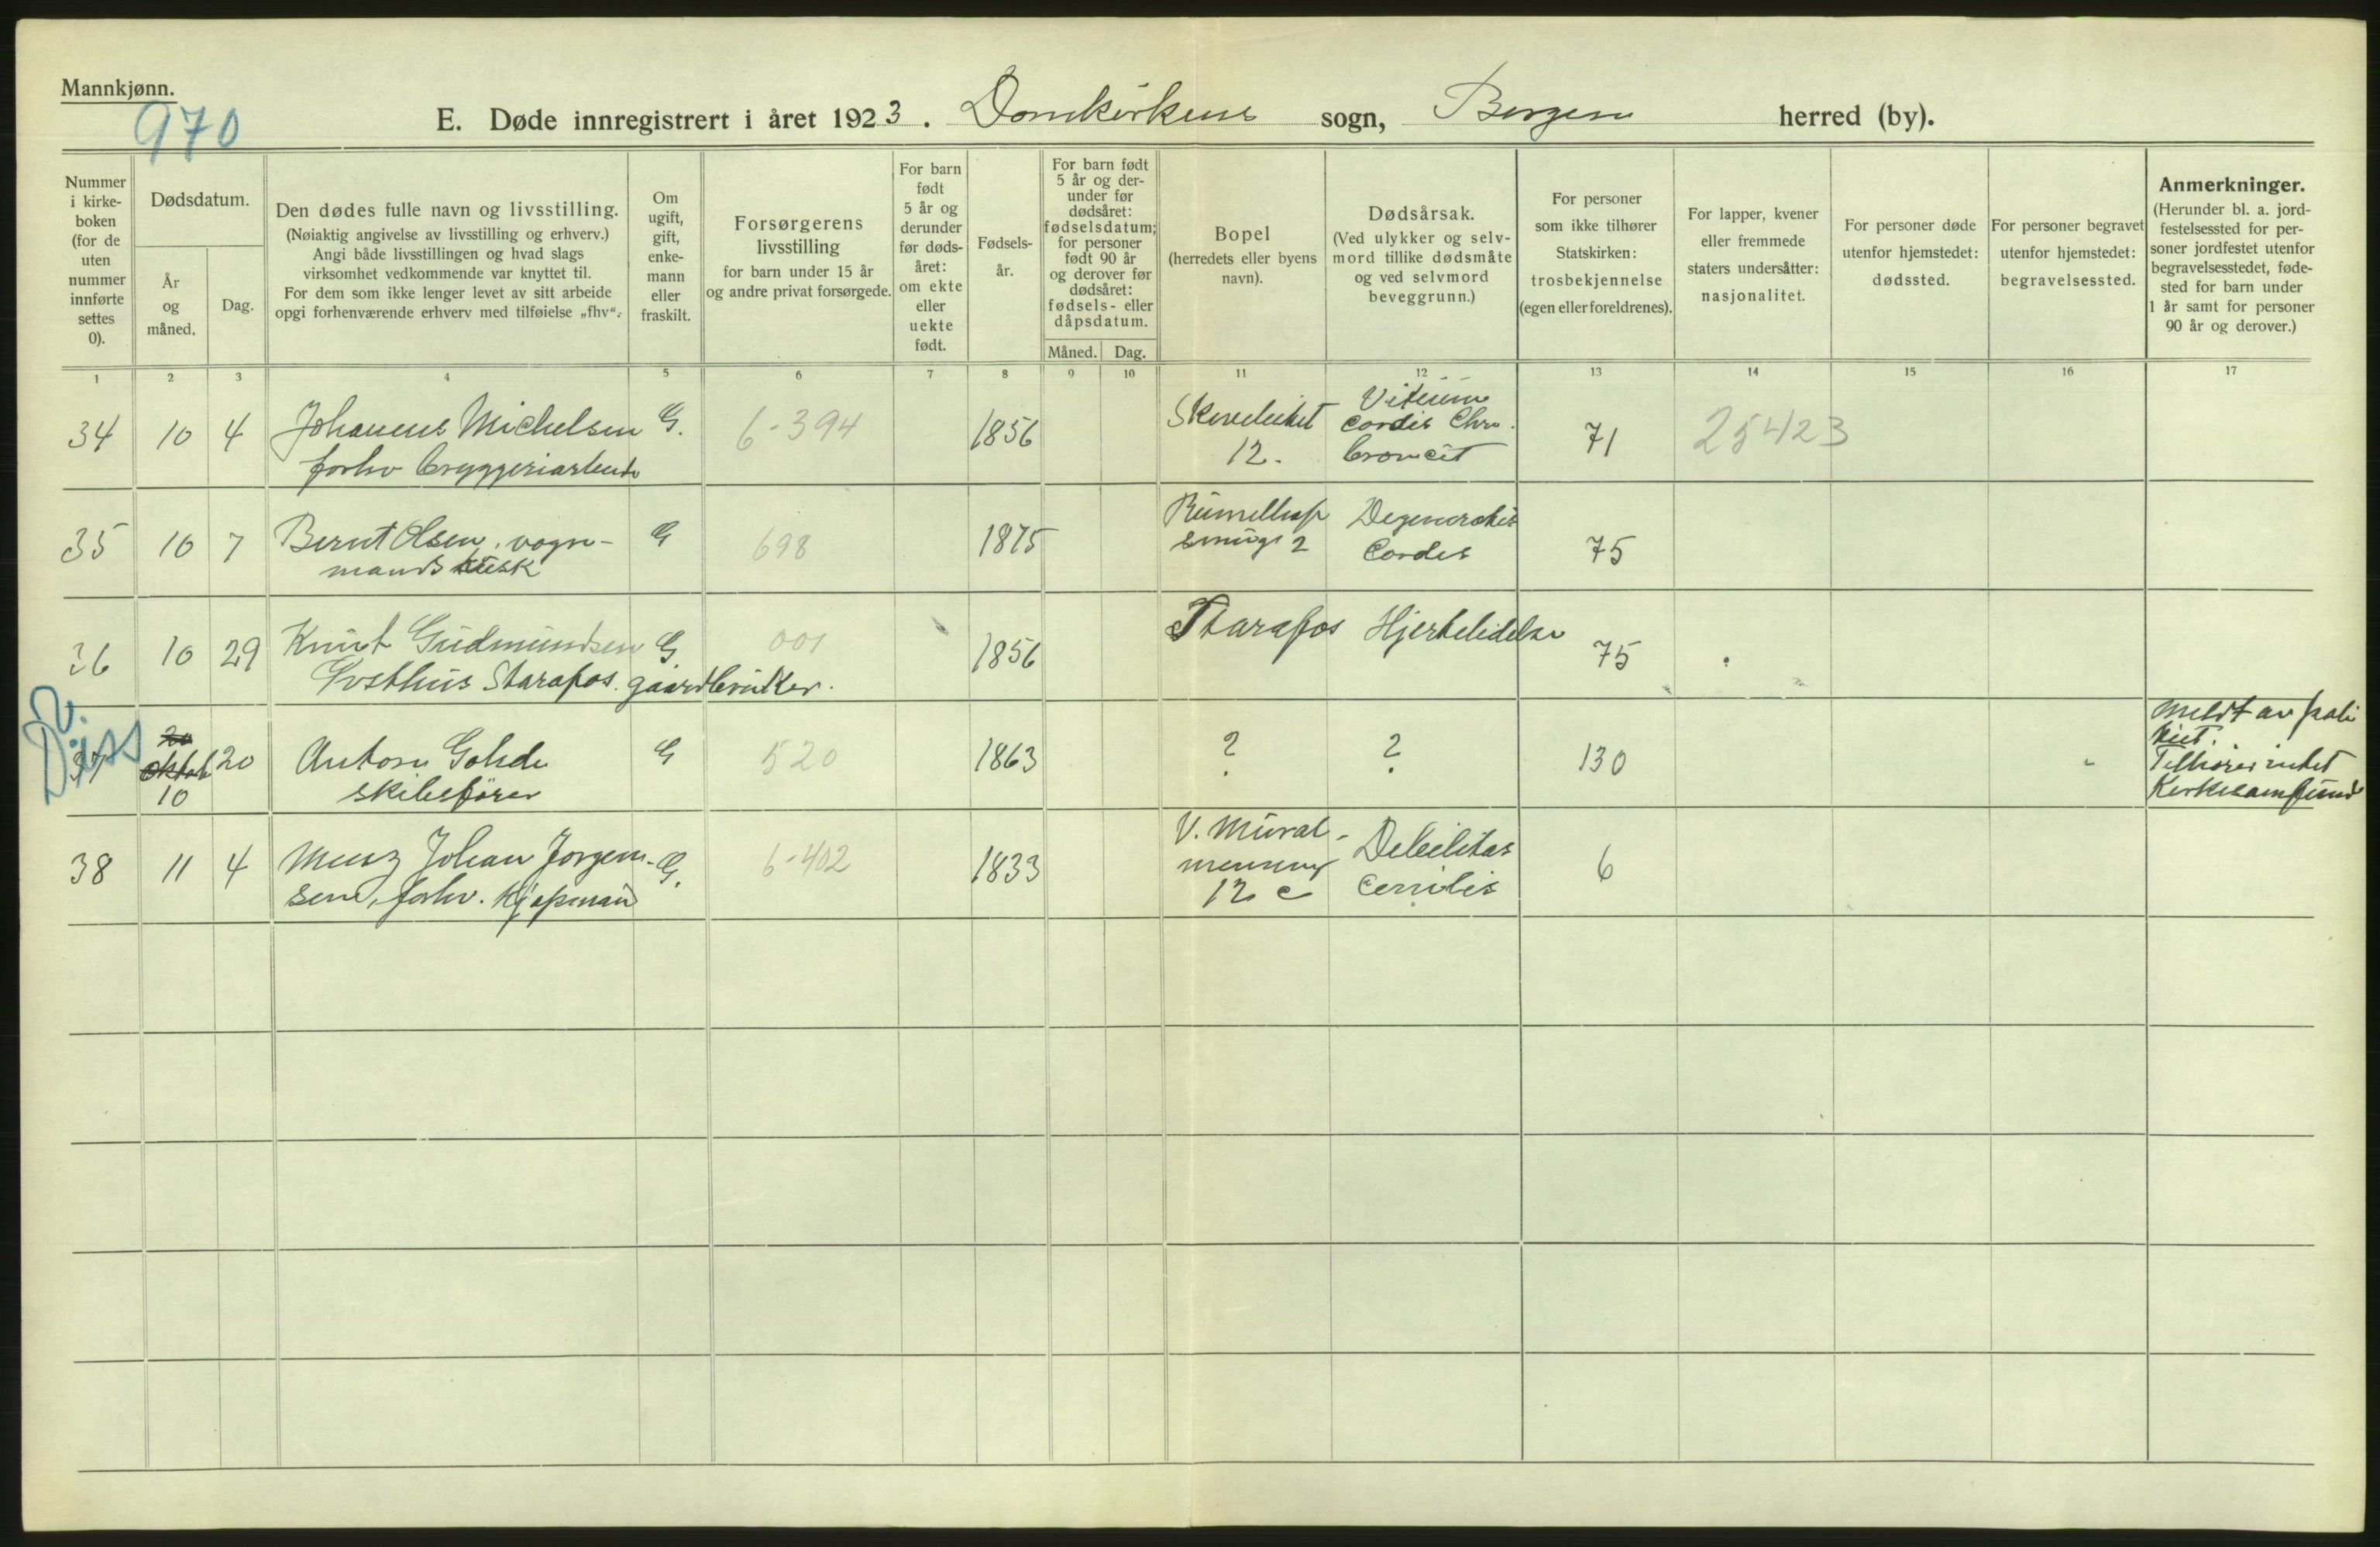 Mannkjønn.
970
E. Døde innregistrert i året 1923. Domkirkens sogn, Bergen herred (by).
Nummer i kirke- boken (for de uten nummer innførte settes 0).
Dødsdatum.
År og måned.
Dag.
Den dødes fulle navn og livsstilling.
(Nøiaktig angivelse av livsstilling og erhverv.)
Angi både livsstillingen og hvad slags
virksomhet vedkommende var knyttet til.
For dem som ikke lenger levet av sitt arbeide
opgi forhenværende erhverv med tilføielse „fhv“.
Om ugift, gift, enke- mann eller fraskilt.
Forsørgerens livsstilling
for barn under 15 år
og andre privat forsørgede.
For barn født 5 år og derunder før døds- året: om ekte eller uekte født.
Fødsels- år.
For barn født 5 år og der- under før dødsåret: fødselsdatum; for personer født 90 år og derover før dødsåret: fødsels- eller dåpsdatum.
Måned. Dag.
Bopel
(herredets eller byens navn).
Dødsårsak.
(Ved ulykker og selv- mord tillike dødsmåte og ved selvmord beveggrunn.)
For personer som ikke tilhører Statskirken: trosbekjennelse (egen eller foreldrenes).
For lapper, kvener eller fremmede staters undersåtter: nasjonalitet.
For personer døde utenfor hjemstedet: dødssted.
For personer begravet utenfor hjemstedet: begravelsessted.
Anmerkninger.
(Herunder bl. a. jord- festelsessted for per- soner jordfestet utenfor begravelsesstedet, føde- sted for barn under 1 år samt for personer 90 år og derover.)
1 2 3 4 5 6 7 8 9 10 11 12 13 14 15 16 17
34 10 4 Johannes Michelsen G. 6-394 1856 12. Vitium Cordis Chr. 71 25423
forhv bryggeriarbeider
35 10 7 Bernt Olsen, vogn- G 698 1875 smug 2 Degeneratio Cordis 75
mands kusk
36 10 29 Knut Gudmundsen G. 001 1856 Starafos Hjertelidelse 75
Starafos. gaardbruker.
37 20 Oktob 10 20 Anton G 520 1863 ? ? 130
skibsfører
Meldt av poli
Tilhører intet
Kirkesamfund
38 11 4 Menz Johan Jørgen- G. 6-402 1833 V. Mural- menning 12 c Debilitas Cenilis 6
sen, forhv. Kjøpmand